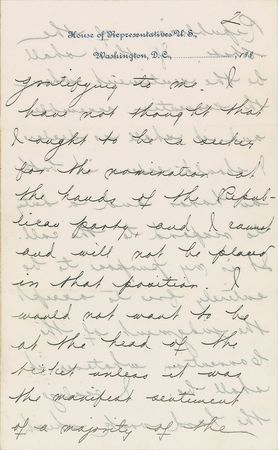 2
House of Representatives U.S.,
Washington, D.C., 188
gratifying to me. I
have not thought that
I ought to be a seeker
for the nomination at
the hands of the Repub-
lican party and I cannot
and will not be placed
in that position. I
would not want to be
at the head of the
ticket unless it was
the manifest sentiment
of a majority of the